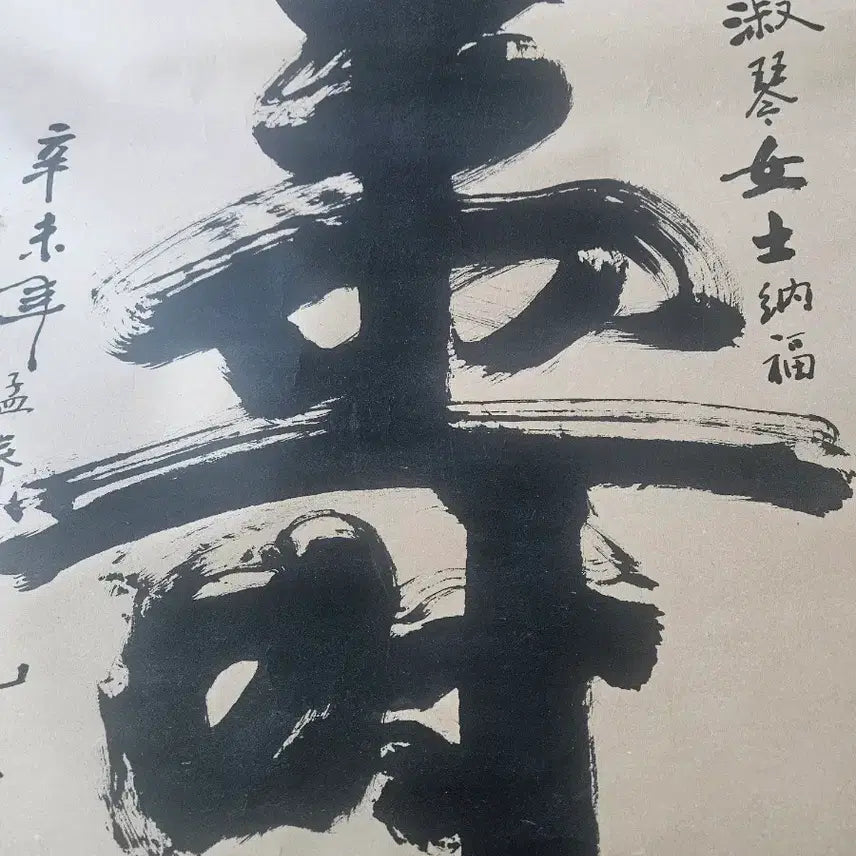 淑琴女士纳福
壽
辛未年孟